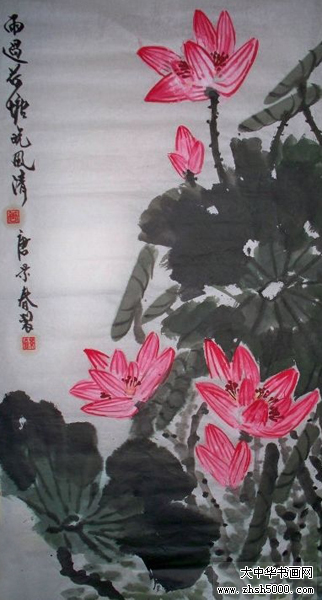 雨過荷塘晚風清
唐景春
大中华书画网
www.zhsh5000.com